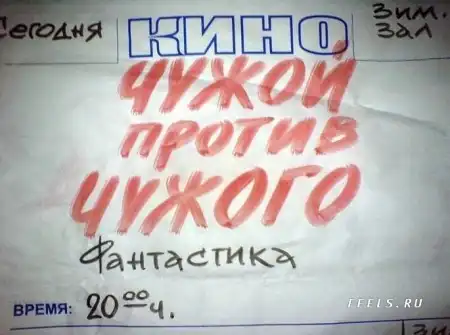 Сегодня
КИНО
Зим.
зал
ЧУЖОЙ
против
ЧУЖОГО
Фантастика
ВРЕМЯ: 20 00 ч.
FFELS.RU